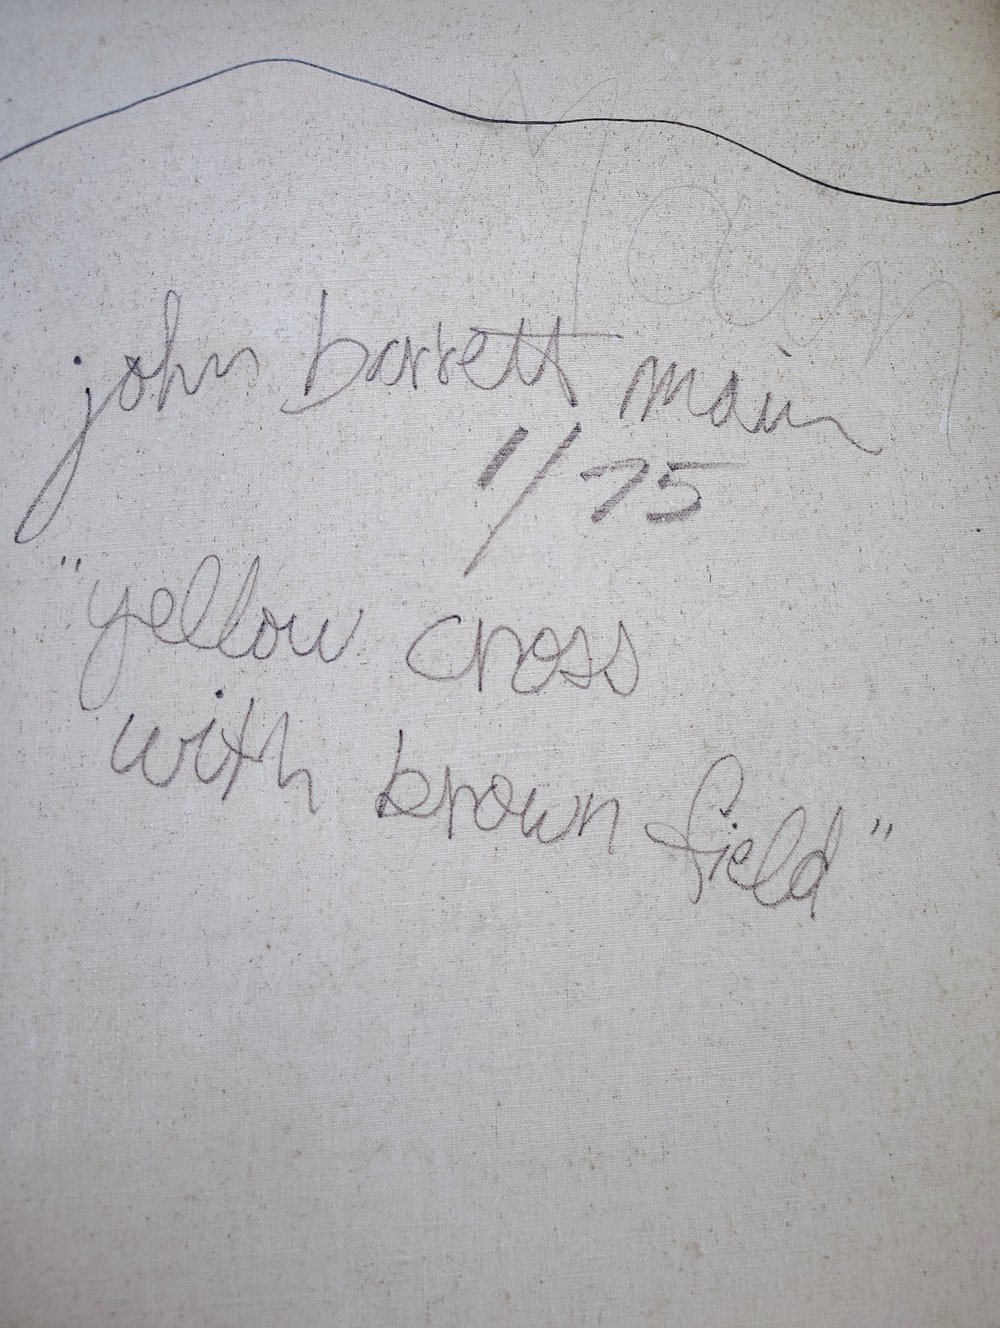 Main
john barrett main
1/75
"yellow cross
with brown field"